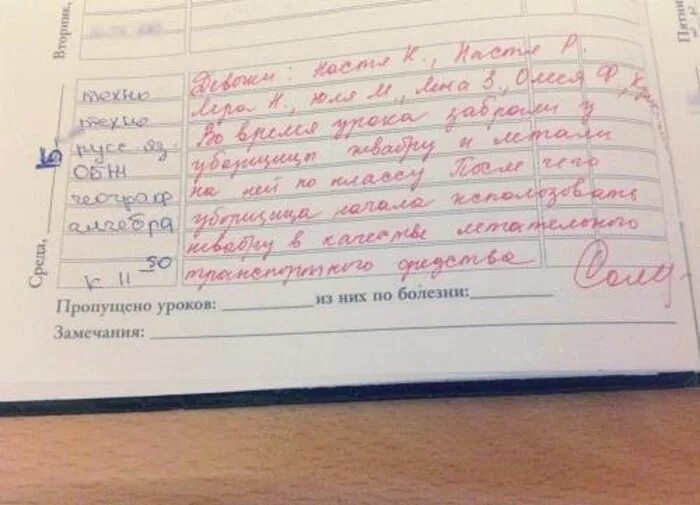 Вторник,
Пятни
Среда,
Б
техно
техно
русс. яз.
ОБЖ
географ
алгебра
к 11 50
Девочки: Настя К., Настя Р.
Лера Н., Юля М., Лена З., Олеся Ф.,
Во время урока забрали у
уборщицы швабру и летали
на ней по классу После чего
уборщица начала использовать
швабру в качестве летательного
транспортного средства
Пропущено уроков: из них по болезни:
Замечания: